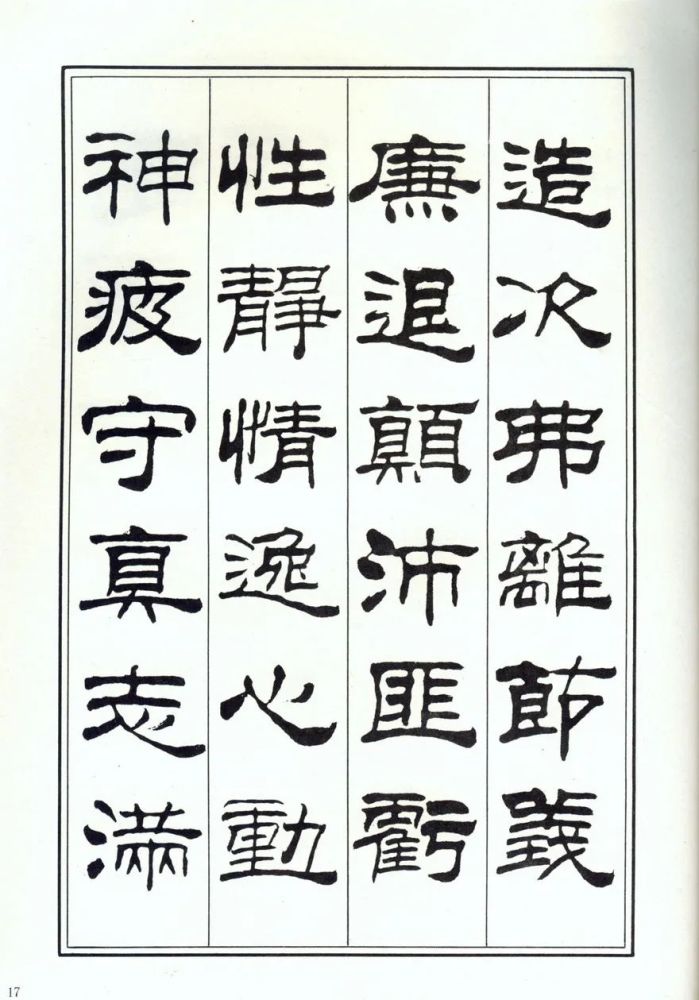 造次弗離節義
廉退顛沛匪虧
性靜情逸心動
神疲守真志滿
17